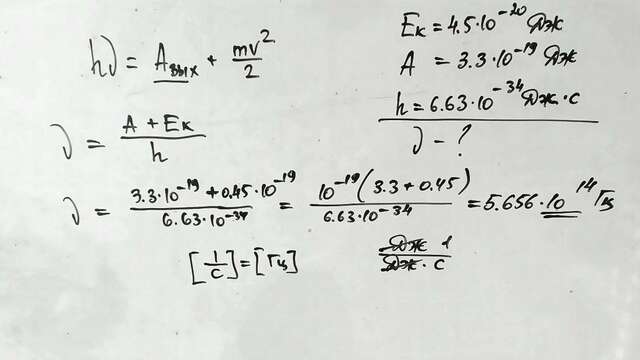 hν = Aвых + mv²/2
Eк = 4.5·10⁻²⁰ Дж
A = 3.3·10⁻¹⁹ Дж
h = 6.63·10⁻³⁴ Дж·с
ν - ?
ν = (A + Eк)/h
ν = (3.3·10⁻¹⁹ + 0.45·10⁻¹⁹)/(6.63·10⁻³⁴) = (10⁻¹⁹(3.3 + 0.45))/(6.63·10⁻³⁴) = 5.656·10¹⁴ Гц
[1/с] = [Гц]
Дж 1/Дж·с